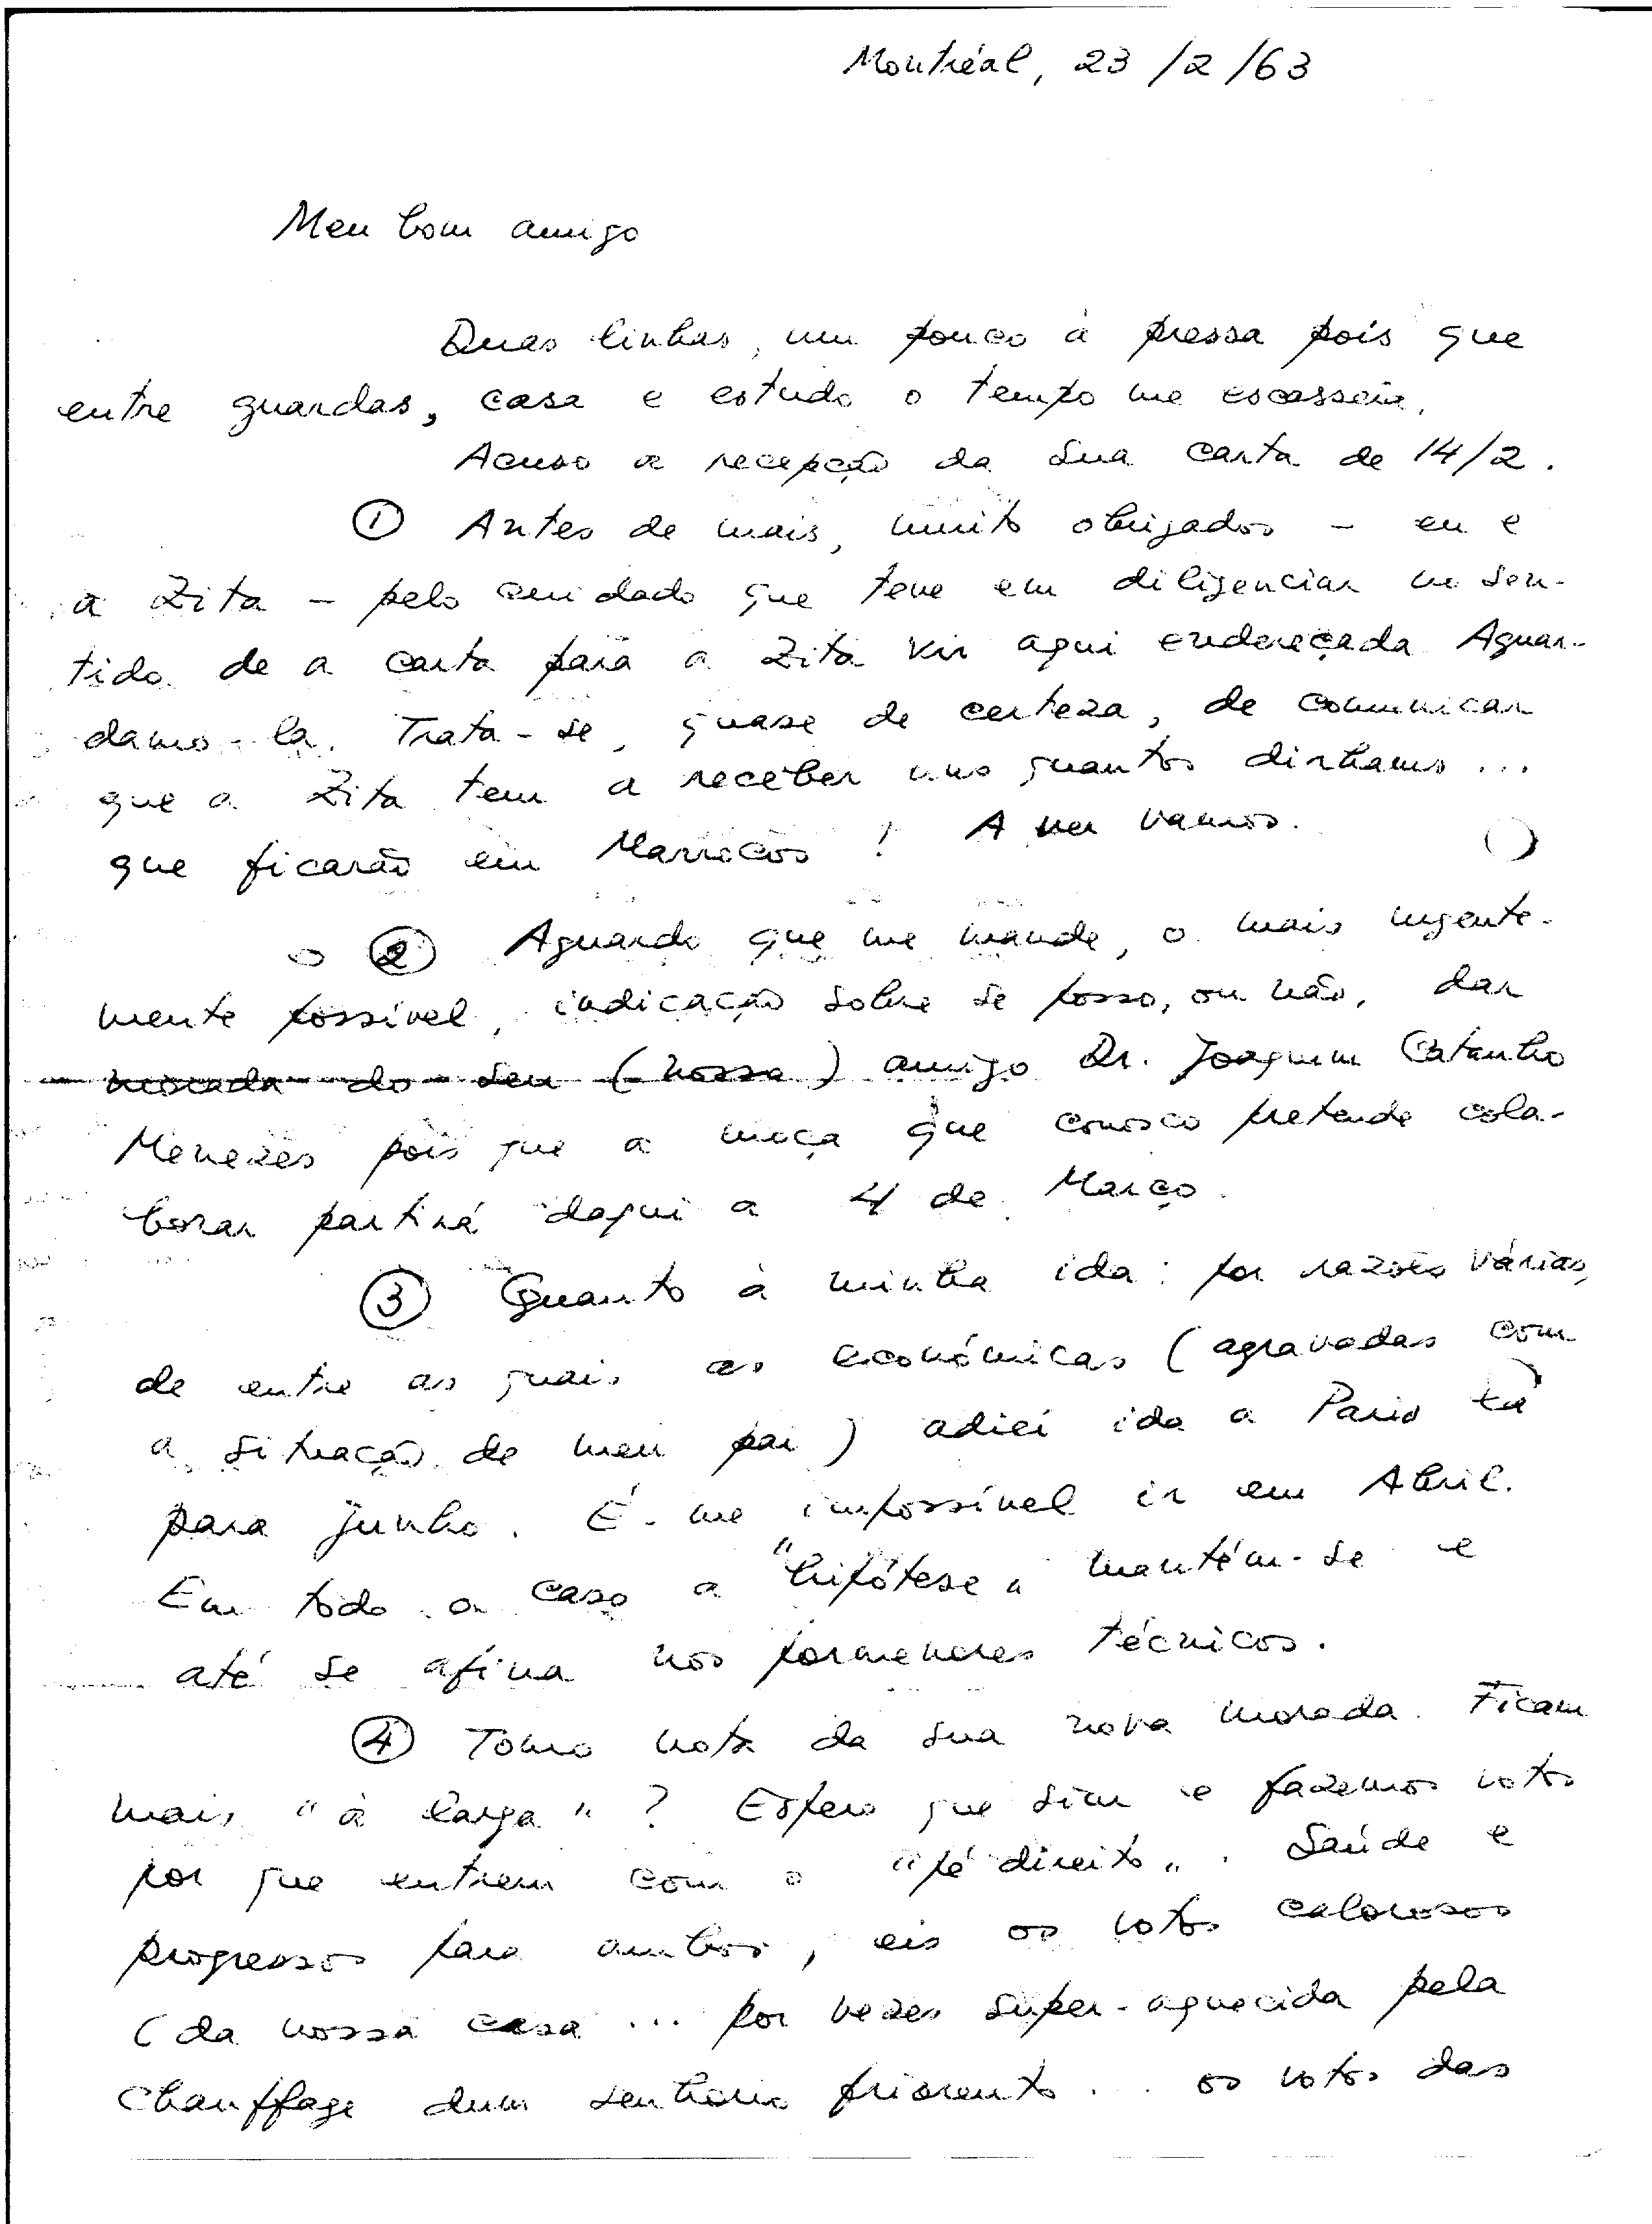 Montréal, 23/2/63
Meu bom amigo
Duas linhas, um pouco à pressa pois que
entre guardas, casa e estudo o tempo me escasseia.
Acuso a recepção da sua carta de 14/2.
① Antes de mais, muito obrigados – eu e
a Zita – pelo cuidado que teve em diligenciar no sen-
tido de a carta para a Zita vir aqui endereçada. Aguar-
damo-la. Trata-se, quase de certeza, de comunicar
que a Zita tem a receber uns quantos dirhams...
que ficarão em Marrocos! A ver vamos.
② Aguardo que me mande, o mais urgente-
mente possível, indicação sobre se posso, ou não, dar
morada do seu (nosso) amigo Dr. Joaquim Catanho
Menezes pois que a moça que conosco pretende cola-
borar partirá daqui a 4 de Março.
③ Quanto à minha ida: por razões várias,
de entre as quais as económicas (agravadas com
a situação de meu pai) adiei ida a Paris lá
para Junho. É-me impossível ir em Abril.
Em todo o caso a "hipótese" mantém-se e
até se afina nos pormenores técnicos.
④ Tomo nota da sua nova morada. Ficam
mais "à larga"? Espero que sim e fazemos votos
por que entrem com o "pé direito". Saúde e
progressos para ambos, eis os votos calorosos
(da nossa casa... por vezes super-aquecida pela
chauffage dum senhorio friorento... os votos das